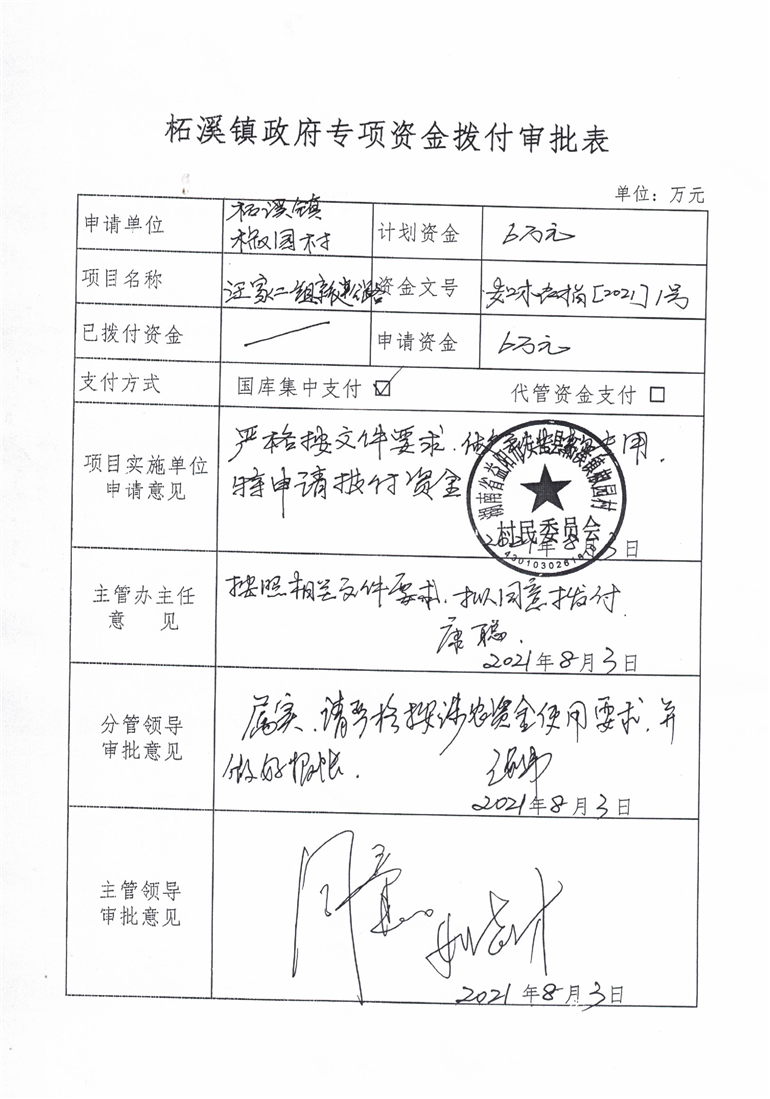 柘溪镇政府专项资金拨付审批表
单位：万元
申请单位
柘溪镇
椒园村
计划资金
6万元
项目名称
汪家二组新建公路
资金文号
[2021]1号
已拨付资金
申请资金
6万元
支付方式
国库集中支付 ☑
代管资金支付 □
项目实施单位
申请意见
严格按文件要求，做到专款专用，
特申请拨付资金
村民委员会
年8月3日
主管办主任
意 见
按照相关文件要求，拟同意拨付
康聪
2021年8月3日
分管领导
审批意见
属实，请严格按涉农资金使用要求，并
做好报账．
2021年8月3日
主管领导
审批意见
同意
2021年8月3日